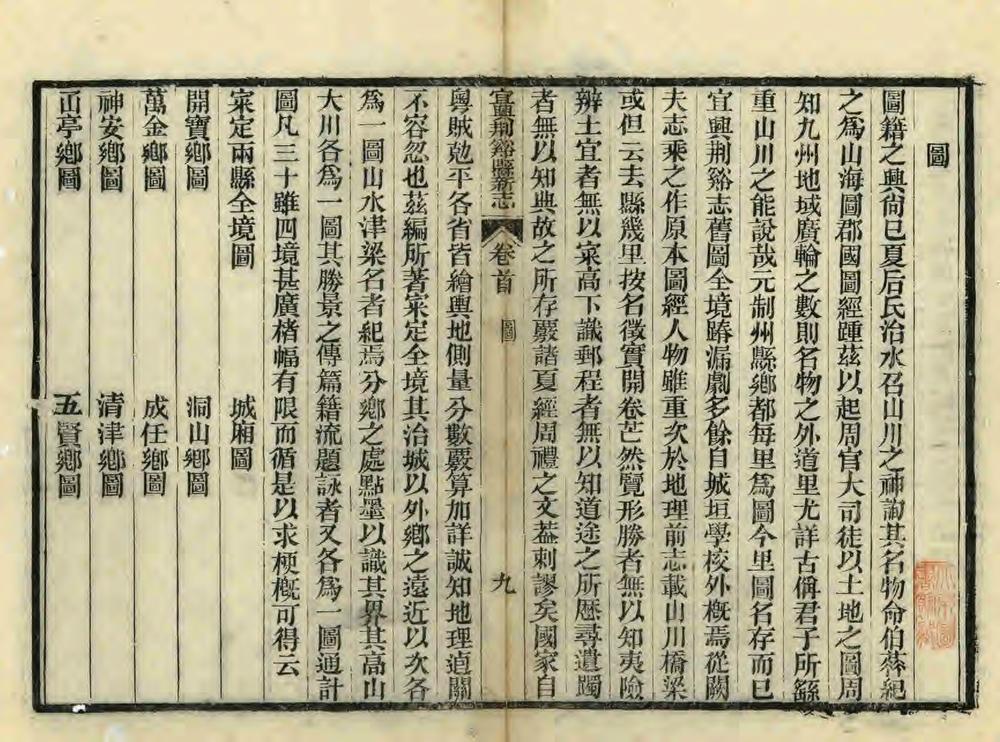 圖
圖籍之興尚已夏后氏治水召山川之神詢其名物命伯益紀
之爲山海圖郡國圖經踵茲以起周官大司徒以土地之圖周
知九州地域廣輪之數則名物之外道里尤詳古偁君子所繇
重山川之能說哉元制州縣鄉都每里爲圖今里圖名存而已
宜興荆谿志舊圖全境踳漏劇多餘自城垣學校外槪焉從闕
夫志乘之作原本圖經人物雖重次於地理前志載山川橋梁
或但云去縣幾里按名徵實開卷芒然覽形勝者無以知夷險
辨土宜者無以㝡高下識郵程者無以知道途之所歷尋遺躅
者無以知典故之所存覈諸夏經周禮之文蓋刺謬矣國家自
宜興荆谿縣新志 卷首 圖 九
粵賊勊平各省皆繪輿地側量分數覈算加詳誠知地理逌關
不容忽也茲編所著㝡定全境其治城以外鄉之遠近以次各
爲一圖山水津梁名者紀焉分鄉之處點墨以識其界其高山
大川各爲一圖其勝景之傳篇籍流題詠者又各爲一圖通計
圖凡三十雖四境甚廣楮幅有限而循是以求梗槪可得云
㝡定兩縣全境圖 城廂圖
開寶鄉圖 洞山鄉圖
萬金鄉圖 成任鄉圖
神安鄉圖 清津鄉圖
亭鄉圖 五賢鄉圖